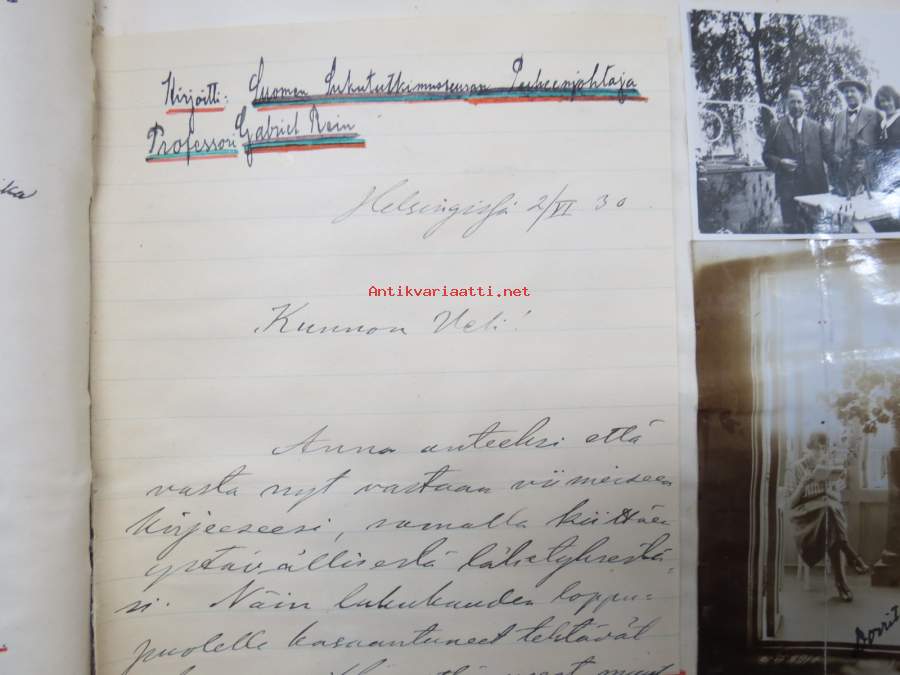 Kirjoitti: Suomen Sukututkimusseuran Puheenjohtaja
Professori Gabriel Rein
Helsingissä 2/VI 30
Antikvariaatti.net
Kunnon Veli!
Anna anteeksi että
vasta nyt vastaan viimeiseen
kirjeeseesi, samalla kiittäen
ystävällisestä lähetyksestä-
si. Näin lukukauden loppu-
puolella kasaantuneet tehtävät